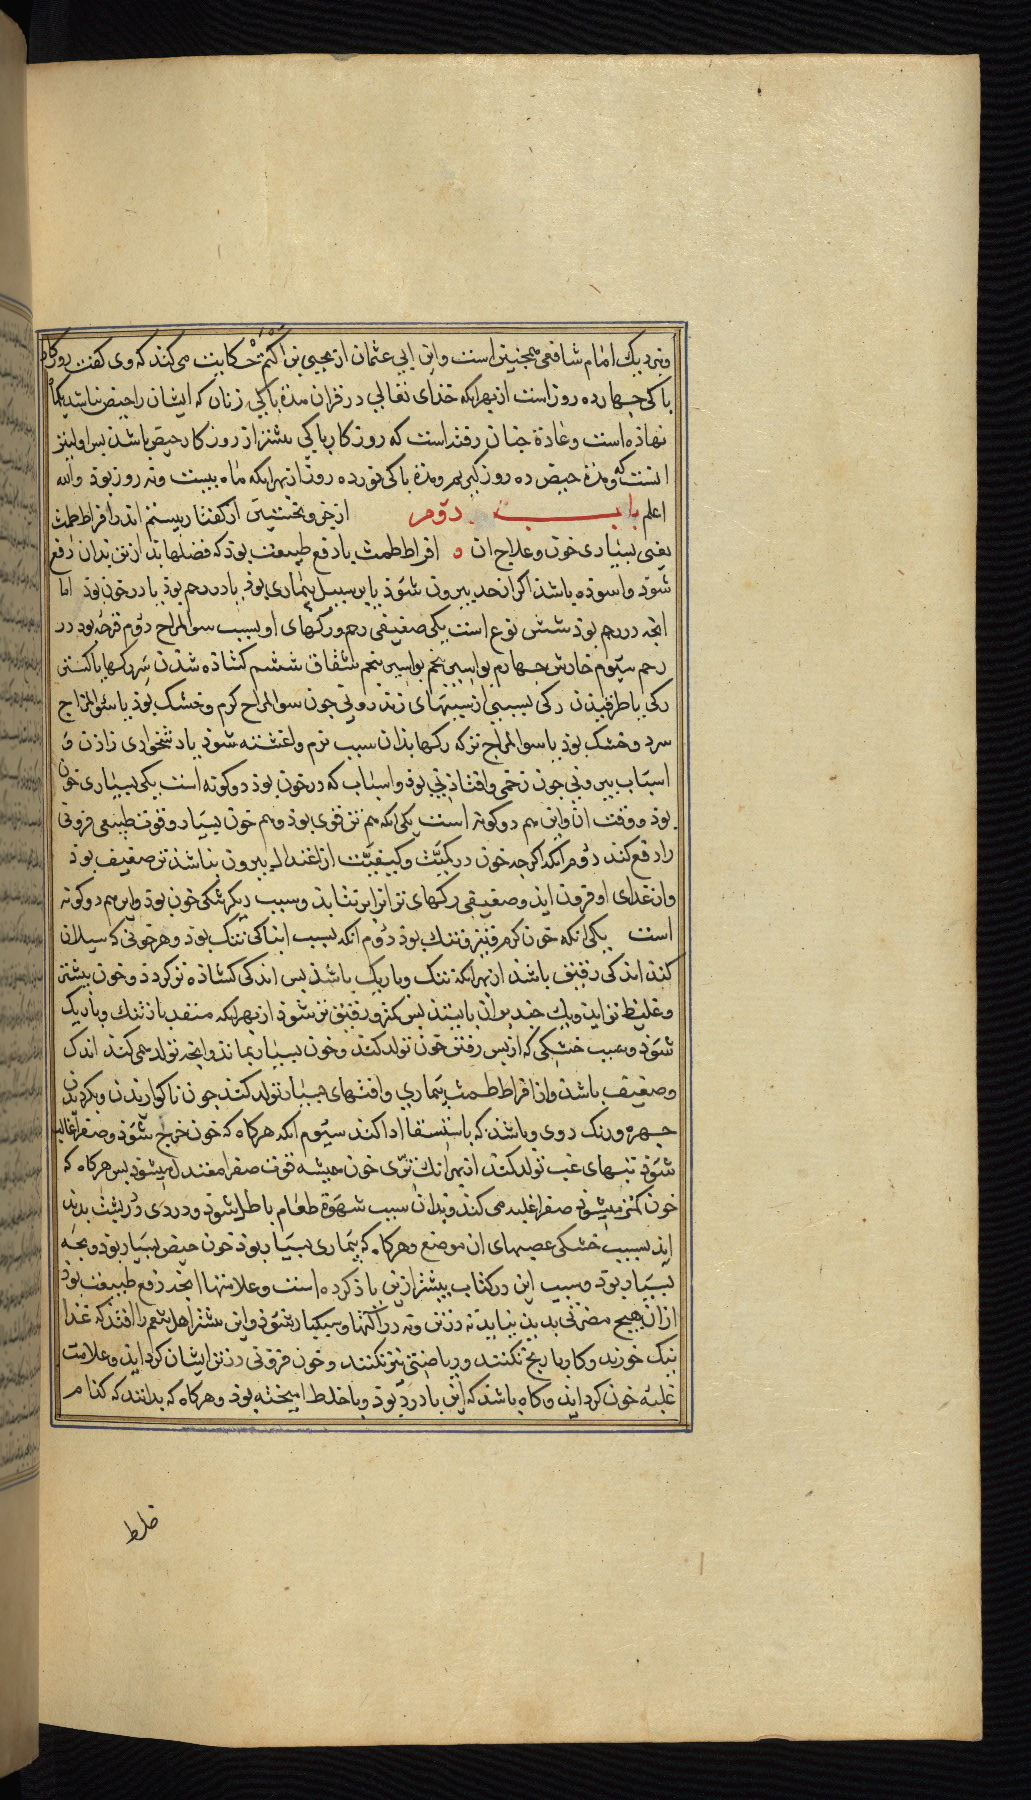 ونزدیك امام شافعی همچنین است وابن ابی عثمان از یحیی بن اکثم حکایت می کند که وی کفت روزکار
باکی چهارده روز است از بهر انکه خدای تعالی در قران مدة باکی زنان که ایشان را حیض نباشد یکماه
نهاذه است وعادة جنان رفته است که روزکار باکی بیشتر از روزکار حیض باشد بس اولیتر
انست که مدة حیض ده روز کیریم ومدة باکی نوزده روز از بهر انکه ماه بیست ونه روز بوذ والله
اعلم باب دوم از جزو نخستین از کفتار بیستم اندر افراط طمث
یعنی بسیاری خون وعلاج ان ه افراط طمث یا دفع طبیعت بوذ که فضلها بذ از تن بذان دفع
شوذ واسوده باشد اکر از حد بیرون شوذ یا بر سبیل بیماری بوذ یا در رحم بوذ یا در خون بوذ اما
انچه در رحم بوذ شش نوع است یکی ضعیفی رحم ورکهای او بسبب سوالمزاج دوم قرحه بوذ در
رحم سیوم خارش جهارم بواسیر بنجم شقاق ششم کشاذه شدن سر رکها یا کسستن
رکی یا طرقیذن رکی بسببی از سببهای اندرونی جون سوالمزاج کرم وخشک بوذ یا سوالمزاج
سرد وخشک بوذ یا سوالمزاج تر که رکها بذان سبب نرم واغشته شوذ یا دشخواری زاذن و
اسباب بیرونی جون زخمی وافتاذنی بوذ واسباب که در خون بوذ دو کونه است یکی بسیاری خون
بوذ ووقت ان واین هم دو کونه است یکی انکه هم تن قوی بوذ وهم خون بسیار وقوت طبیعی فزونی
را دفع کند دوم انکه اکرجه خون در کمیت وکیفیت از اعتدال بیرون نباشد تن ضعیف بوذ
وان غذای او فزون ایذ وضعیفی رکهای تن انرا بر نتابذ وسبب دیکر تنکی خون بوذ واین هم دو کونه
است یکی انکه خون کرم وتیز وتنك بوذ دوم انکه بسبب ابناکی تنک بوذ وهر خونی که سیلان
کند اندکی رقیق باشد از بهر انکه تنک وباریک باشد بس اندکی کشاذه تر کردد وخون بیشتر
وغلیظ تر ایذ ویك جند بران بایستد بس کمتر ورقیق تر شوذ از بهر انکه منفذ باز تنك وباریک
شوذ وسبب خشکی که از بس رفتن خون تولد کند وخون بسیار نماند وانچه تولد می کند اندک
وضعیف باشد واز افراط طمث بیماری وافتهای بسیار تولد کند جون ناکواریدن وبکردیدن
جهره ورنک روی وباشد که باستسقا ادا کند سیوم انکه هرکاه که خون خرج شوذ وصفرا غالب
شوذ تبهای غب تولد کند از بهر انك تری خون همیشه قوت صفرا معتدل میشوذ بس هرکاه که
خون کمتر میشوذ صفرا غلبه می کند وبذان سبب شهوة طعام باطل شوذ ودردی در بشت بدید
ایذ بسبب خشکی عصبهای ان موضع وهرکاه که بیماری بسیار بوذ خون حیض بسیار بوذ وبجه
بسیار بوذ وسبب این در کتاب بیشتر ازین یاذ کرده است وعلامتها انچه دفع طبیعت بوذ
ازان هیچ مضرتی بدید نیاید نه در تن ونه در رنکها وسبکبار شوذ واین بیشتر اهل تنعم را افتد که غذا
نیک خورند وکار با رنج نکنند وریاضتی نیز نکنند وخون فزونی در تن ایشان کرد ایذ وعلامت
غلبه خون کرد ایذ وکاه باشد که این با درد بوذ وبا خلط امیخته بوذ وهرکاه که بدانند که کدام
خلط